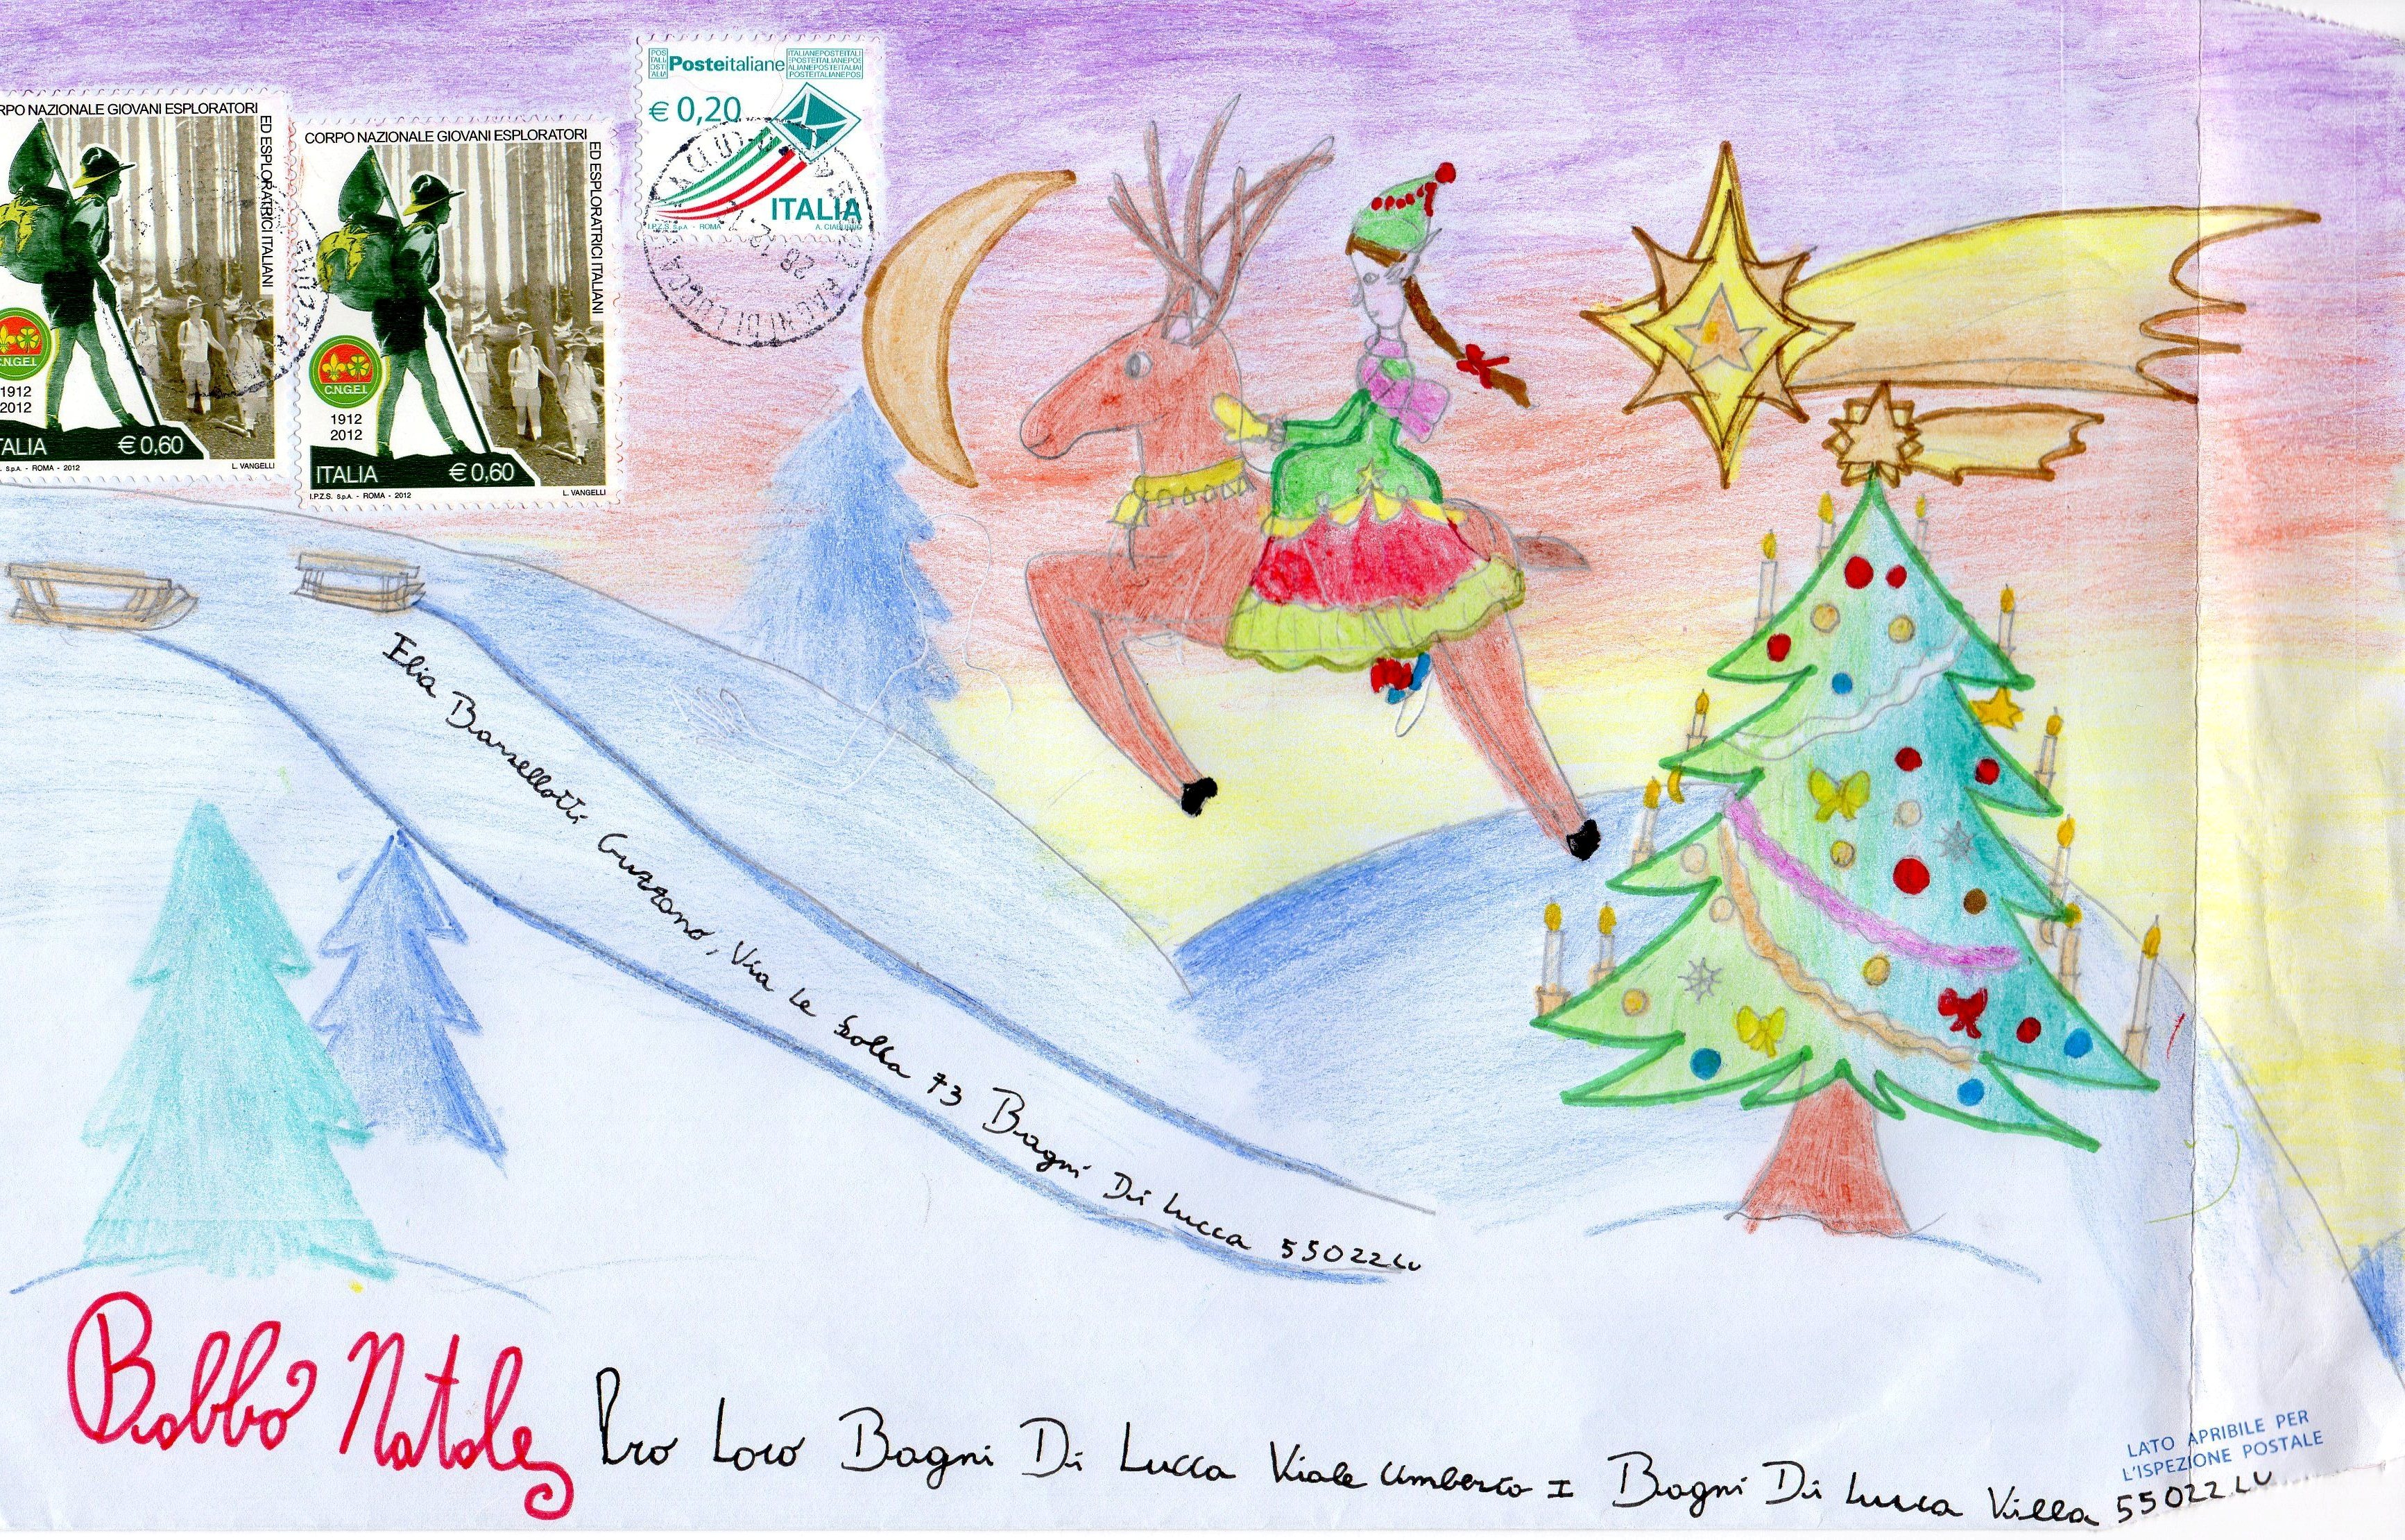 RPO NAZIONALE GIOVANI ESPLORATORI
ED ESPLORATRICI ITALIANI
C.N.G.E.I.
1912
2012
TALIA € 0,60
S.p.A. - ROMA - 2012
L. VANGELLI
CORPO NAZIONALE GIOVANI ESPLORATORI
ED ESPLORATRICI ITALIANI
C.N.G.E.I.
1912
2012
ITALIA € 0,60
I.P.Z.S. S.p.A. - ROMA - 2012
L. VANGELLI
Posteitaliane
€ 0,20
ITALIA
I.P.Z.S. S.p.A. - ROMA
BAGNI DI LUCCA
28.12
Elia Barsellotti Guzzano, Via le 73 Bagni Di Lucca 55022 LU
Babbo Natale
Pro Loco Bagni Di Lucca Viale Umberto I Bagni Di Lucca Villa 55022 LU
LATO APRIBILE PER
L'ISPEZIONE POSTALE